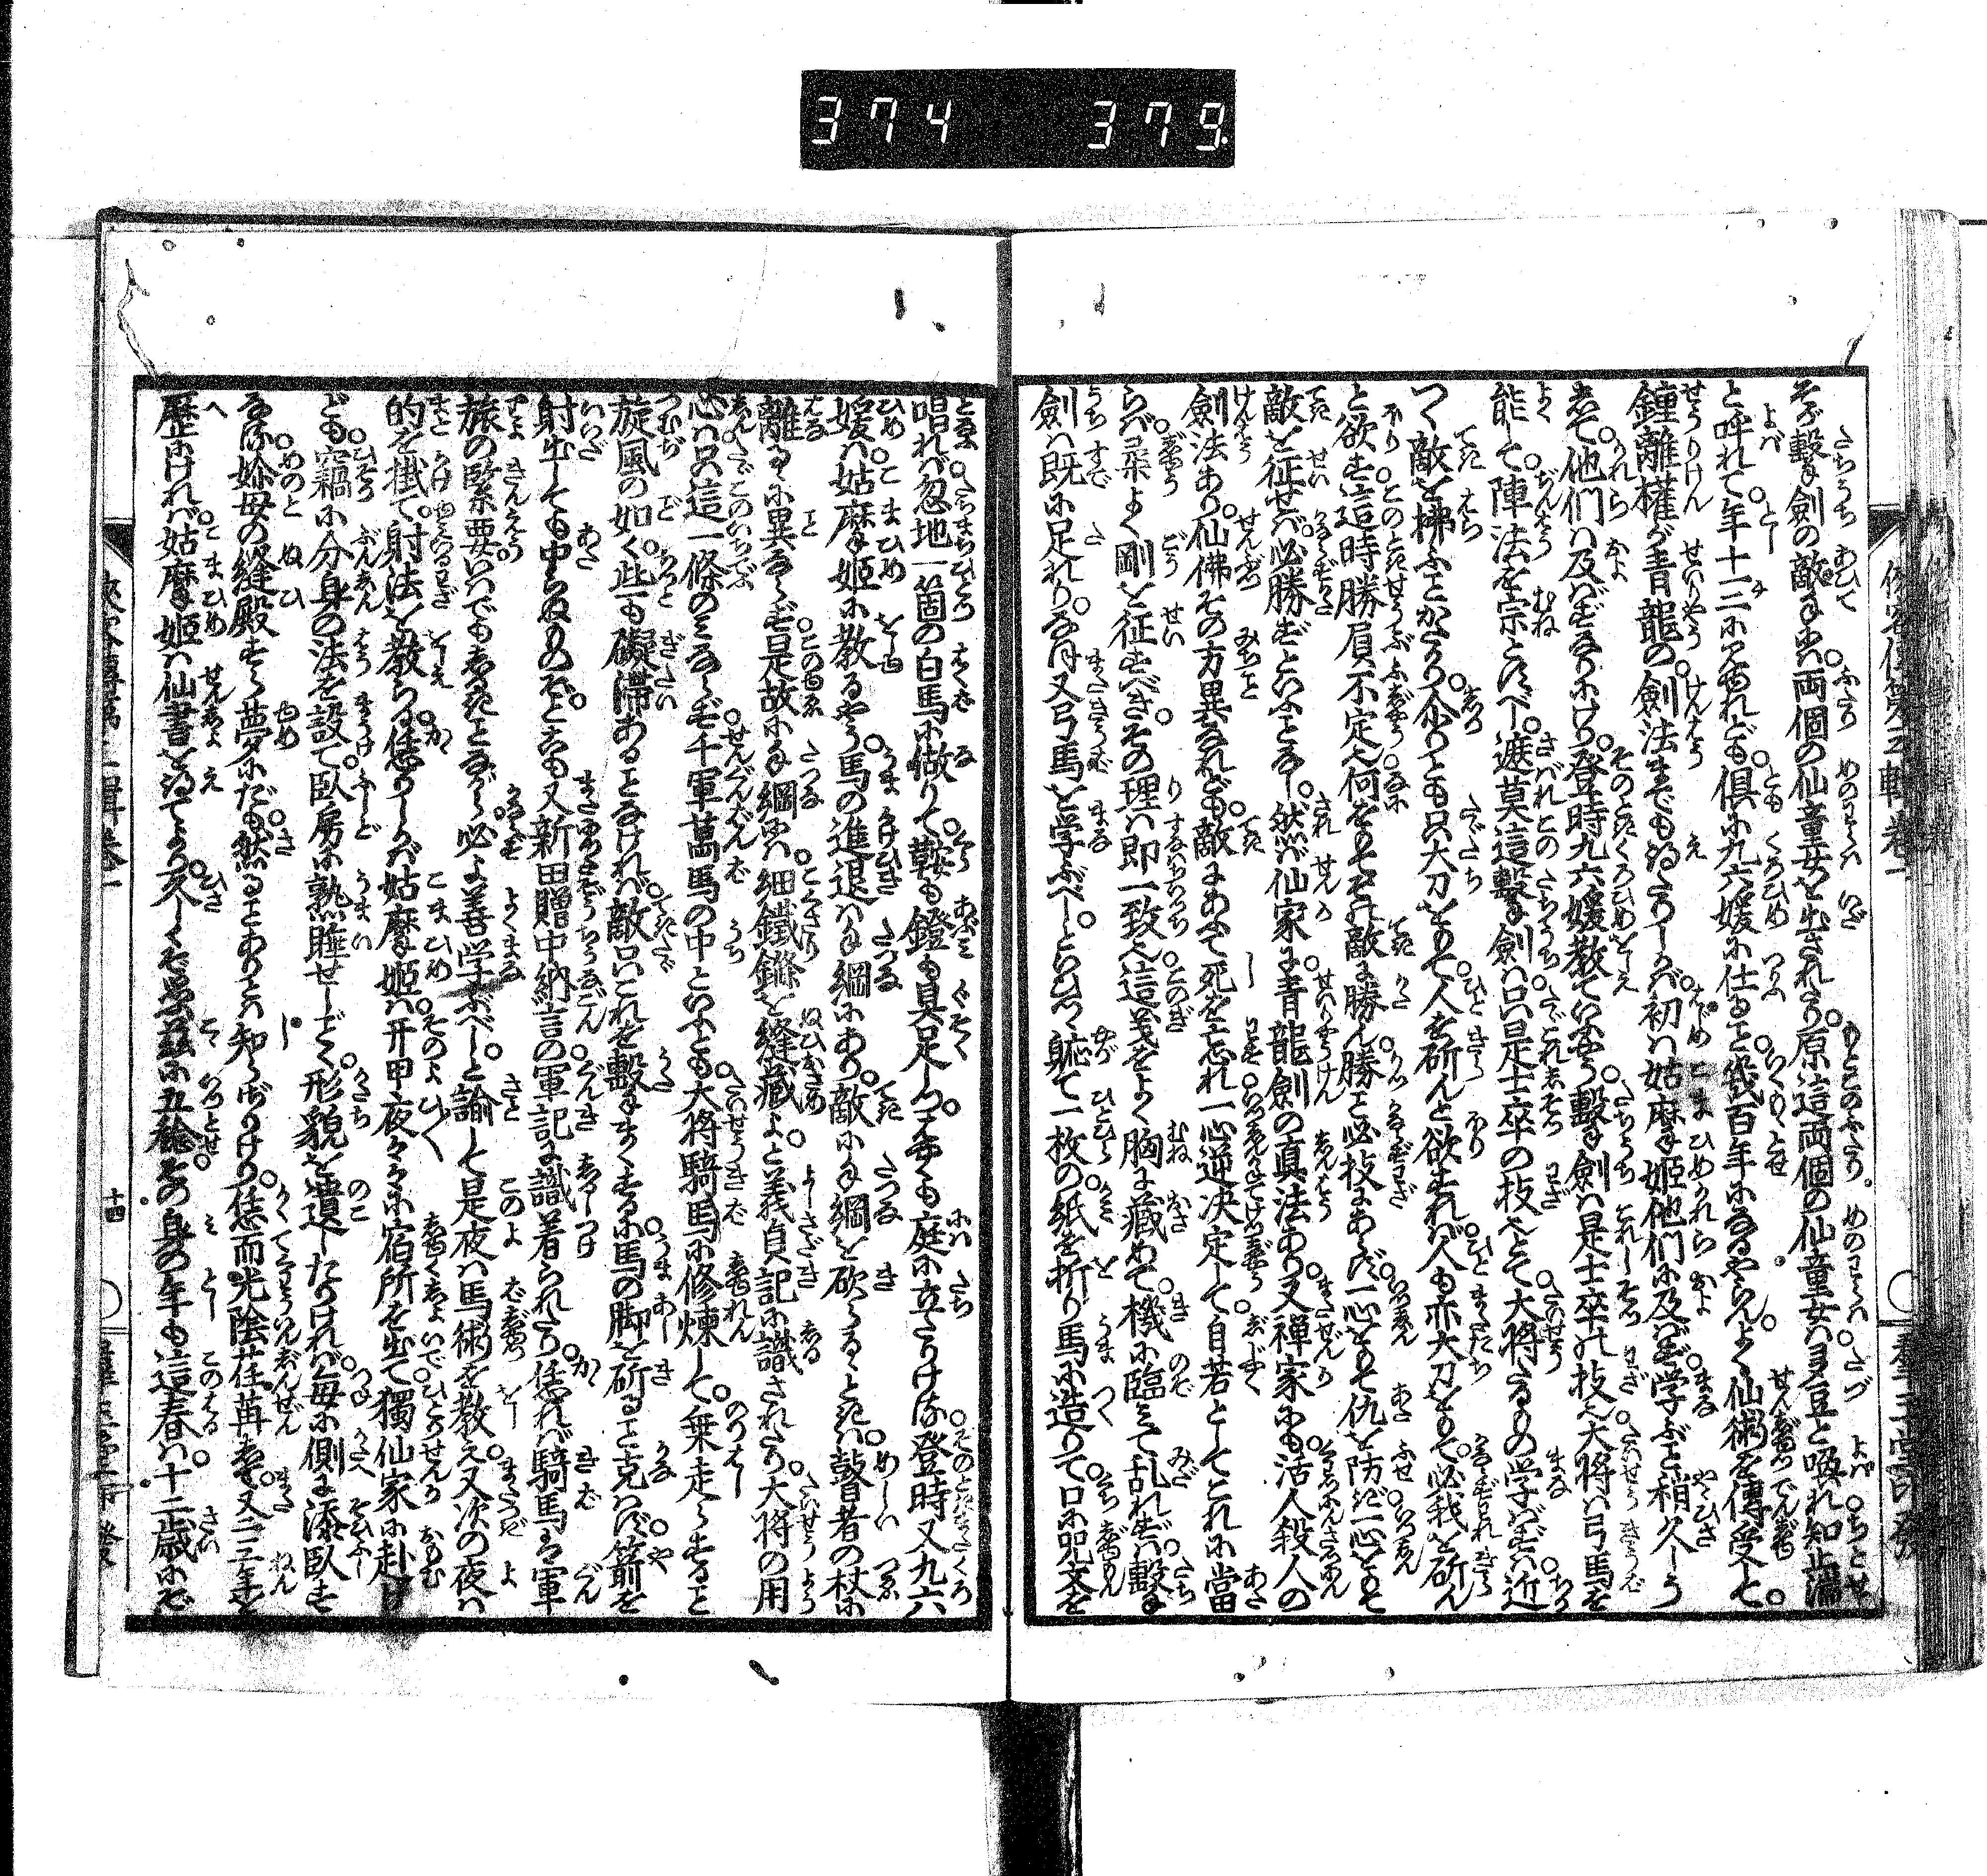 374 379
そが撃剣の敵手にハ両個の仙童女を出されたり原這両個の仙童女ハ豆と喚れ知止湍
と呼れて年十二三に見ゆれども倶に九六媛に仕ること幾百年になるやらんよく仙術を傳受して
鍾離權が青龍の剣法までも得たりしかバ初ハ姑摩姫他們に及バず学ぶこと稍久しう
して他們ハ及バずなりにけり登時九六媛教ていふやう撃剣ハ是士卒の技也大将ハ弓馬を
能して陣法を宗とすべし遮莫這撃剣ハ只是士卒の技也とて大将たるもの学バずハ近
つく敵を拂ふことかたかり介りとも只大刀をもて人を斫んと欲すれバ人も亦大刀をもて必我を斫ん
と欲す這時勝負不定也何をもてその敵に勝ん勝こと必技にあらず一心をもて仇を防ぎ一心をもて
敵を征せバ必勝ずといふことなし然バ仙家に青龍剣の真法あり又禅家にも活人殺人の
剣法あり仙佛その方異なれども敵にあふて死を忘れ一心逆决定して自若としてこれに當
らバ柔よく剛を征すべきその理ハ即一致也這義をよく胸に藏めて機に臨みて乱れずバ撃
剣ハ既に足れりなほ又弓馬を学ぶべしといひつゝ軈て一枚の紙を折り馬に造りて口に咒文を
唱れバ忽地一箇の白馬に做りて鞍も鐙も具足しつ云云も庭に立たりける登時又九六
媛ハ姑摩姫に教るやう馬の進退ハ手綱にあり敵に手綱を砍らるゝときハ瞽者の杖に
離るゝに異ならず是故に手綱にハ細鐵鏁を縫藏よと義貞記に識されたり大将の用
心ハ只這一條のミならず千軍萬馬の中といふとも大将騎馬に修煉して乗走らすること
旋風の如く些も礙滞あることなけれバ敵只これを撃まくするに馬の脚を斫ること克ハず箭を
射出しても中らぬものぞと云も又新田贈中納言の軍記に識着られたり恁れバ騎馬ハ軍
旅の緊要いはでもしるきことながら必よ善学ぶべしと諭して是夜ハ馬術を教え又次の夜ハ
的を掛て射法を教らる恁りしかバ姑摩姫ハ开甲夜々々に宿所を出て獨仙家に赴け
ども竊に分身の法を設て臥房に熟睡せしごとく形貌を遺したりけれバ毎に側に添臥す
なる㛅母の縫殿すら夢にだも然ることありとハ知らざりけり恁而光陰荏苒として又二三年を
歴にけれバ姑摩姫ハ仙書を得てより久しくもこゝに五稔その身の年も這春ハ十二歳にぞ
十四